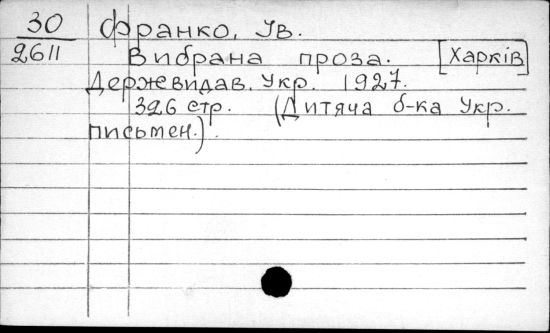 30 Франко, Ів.
2611 Вибрана проза. [Харків]
Держвидав. Укр. 1927.
326 стр. (Дитяча б-ка Укр.
письмен.).